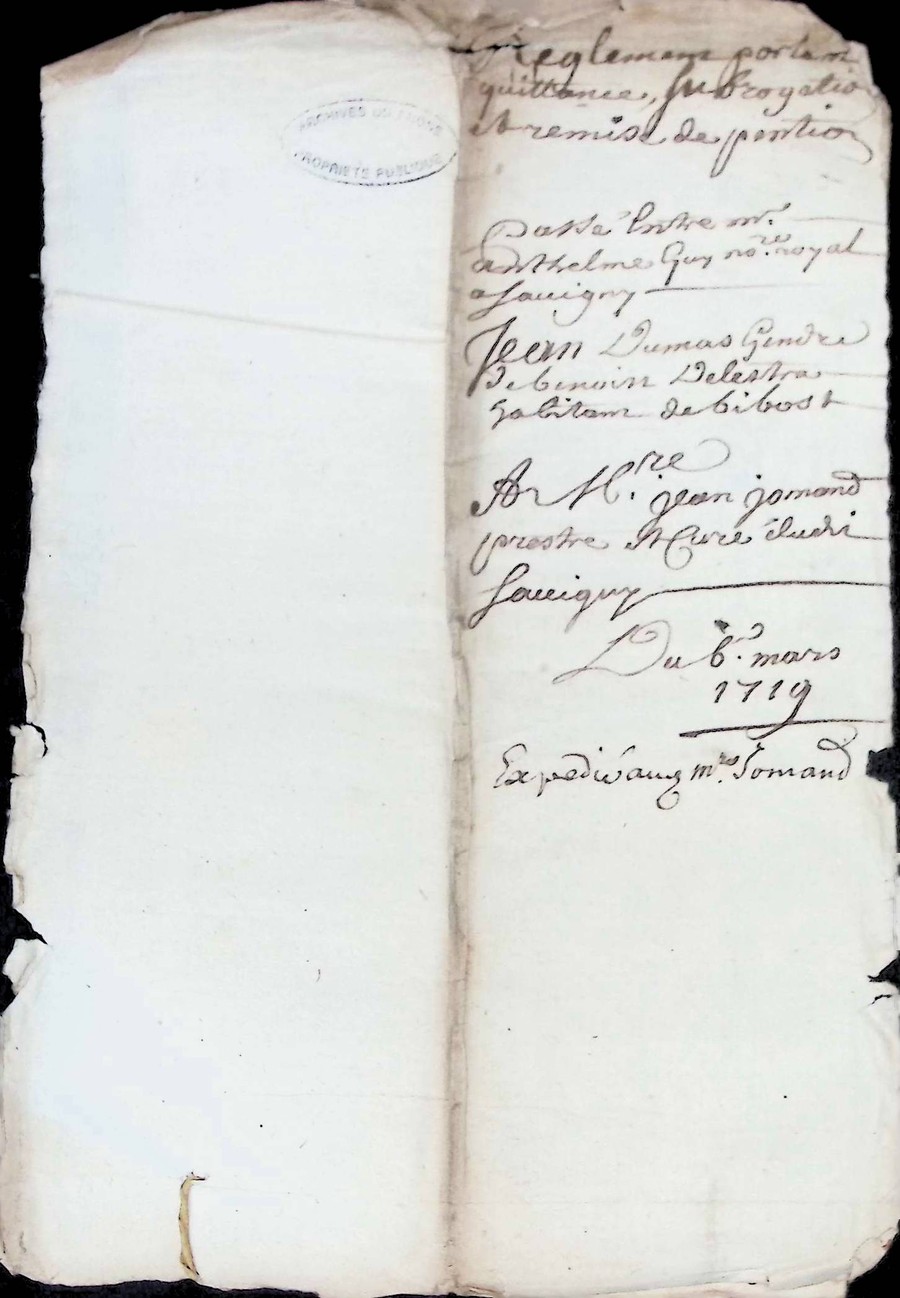 ARCHIVES DU RHONE
PROPRIETE PUBLIQUE
Reglement portant
quittance, subrogation
et remise de pention
Passé Entre mr.
anthelme Guy nore. royal
a Savigny
Jean Dumas Gendre
de benoist Delestra
habitant de bibost
A Mre. jean jomand
prestre et Curé dudit
Savigny
Du 6e. mars
1719
Expedié aux mrs. Jomand